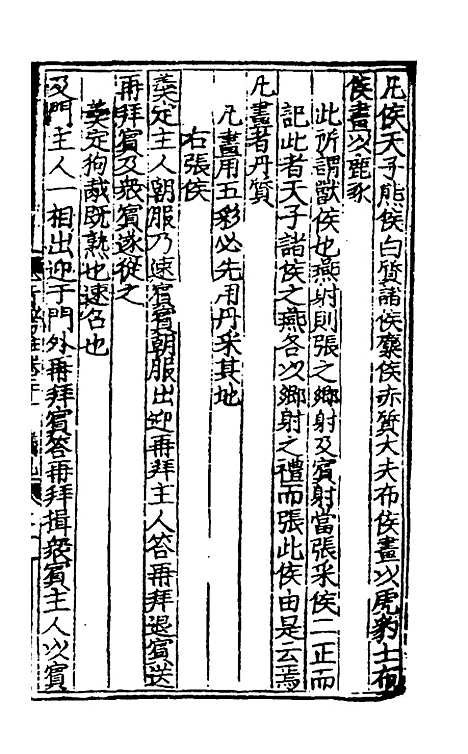 凡侯天子熊侯白質諸侯麋侯赤質大夫布侯畫以虎豹士布
侯畫以鹿豕
此所謂獸侯也燕射則張之鄉射及賔射當張采侯二正而
記此者天子諸侯之燕各以鄉射之禮而張此侯由是云焉
凡畫者丹質
凡畫用五彩必先用丹采其地
右張侯
羮定主人朝服乃速賔賔朝服出迎再拜主人答再拜退賔送
再拜賔及衆賔遂從之
羮定狗胾既熟也速召也
及門主人一相出迎于門外再拜賔答再拜揖衆賔主人以賔